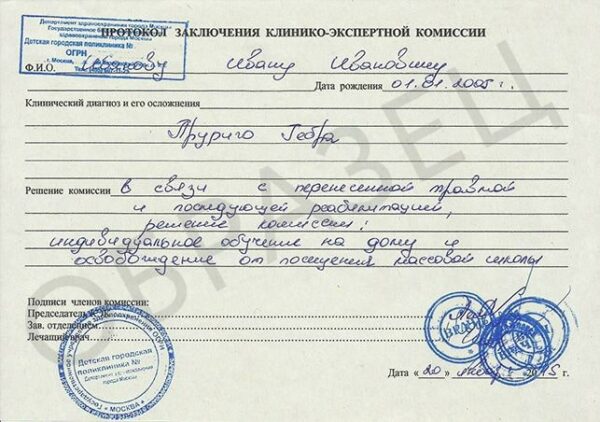 ПРОТОКОЛ ЗАКЛЮЧЕНИЯ КЛИНИКО-ЭКСПЕРТНОЙ КОМИССИИ
Департамент здравоохранения города Москвы
Детская городская поликлиника №
ОГРН
г. Москва,
Ф.И.О. Иванову Ивану Ивановичу
Дата рождения 01.01.2005 г.
Клинический диагноз и его осложнения
Пруриго Гебра
Решение комиссии в связи с перенесенной травмой
и последующей реабилитацией,
решение комиссии:
индивидуальное обучение на дому и
освобождение от посещения массовой школы
ОБРАЗЕЦ
Подписи членов комиссии:
Председатель
Зав. отделением
Лечащий врач
Детская городская
поликлиника №
Департамент здравоохранения
города Москвы
* МОСКВА *
Дата «20» 2015 г.